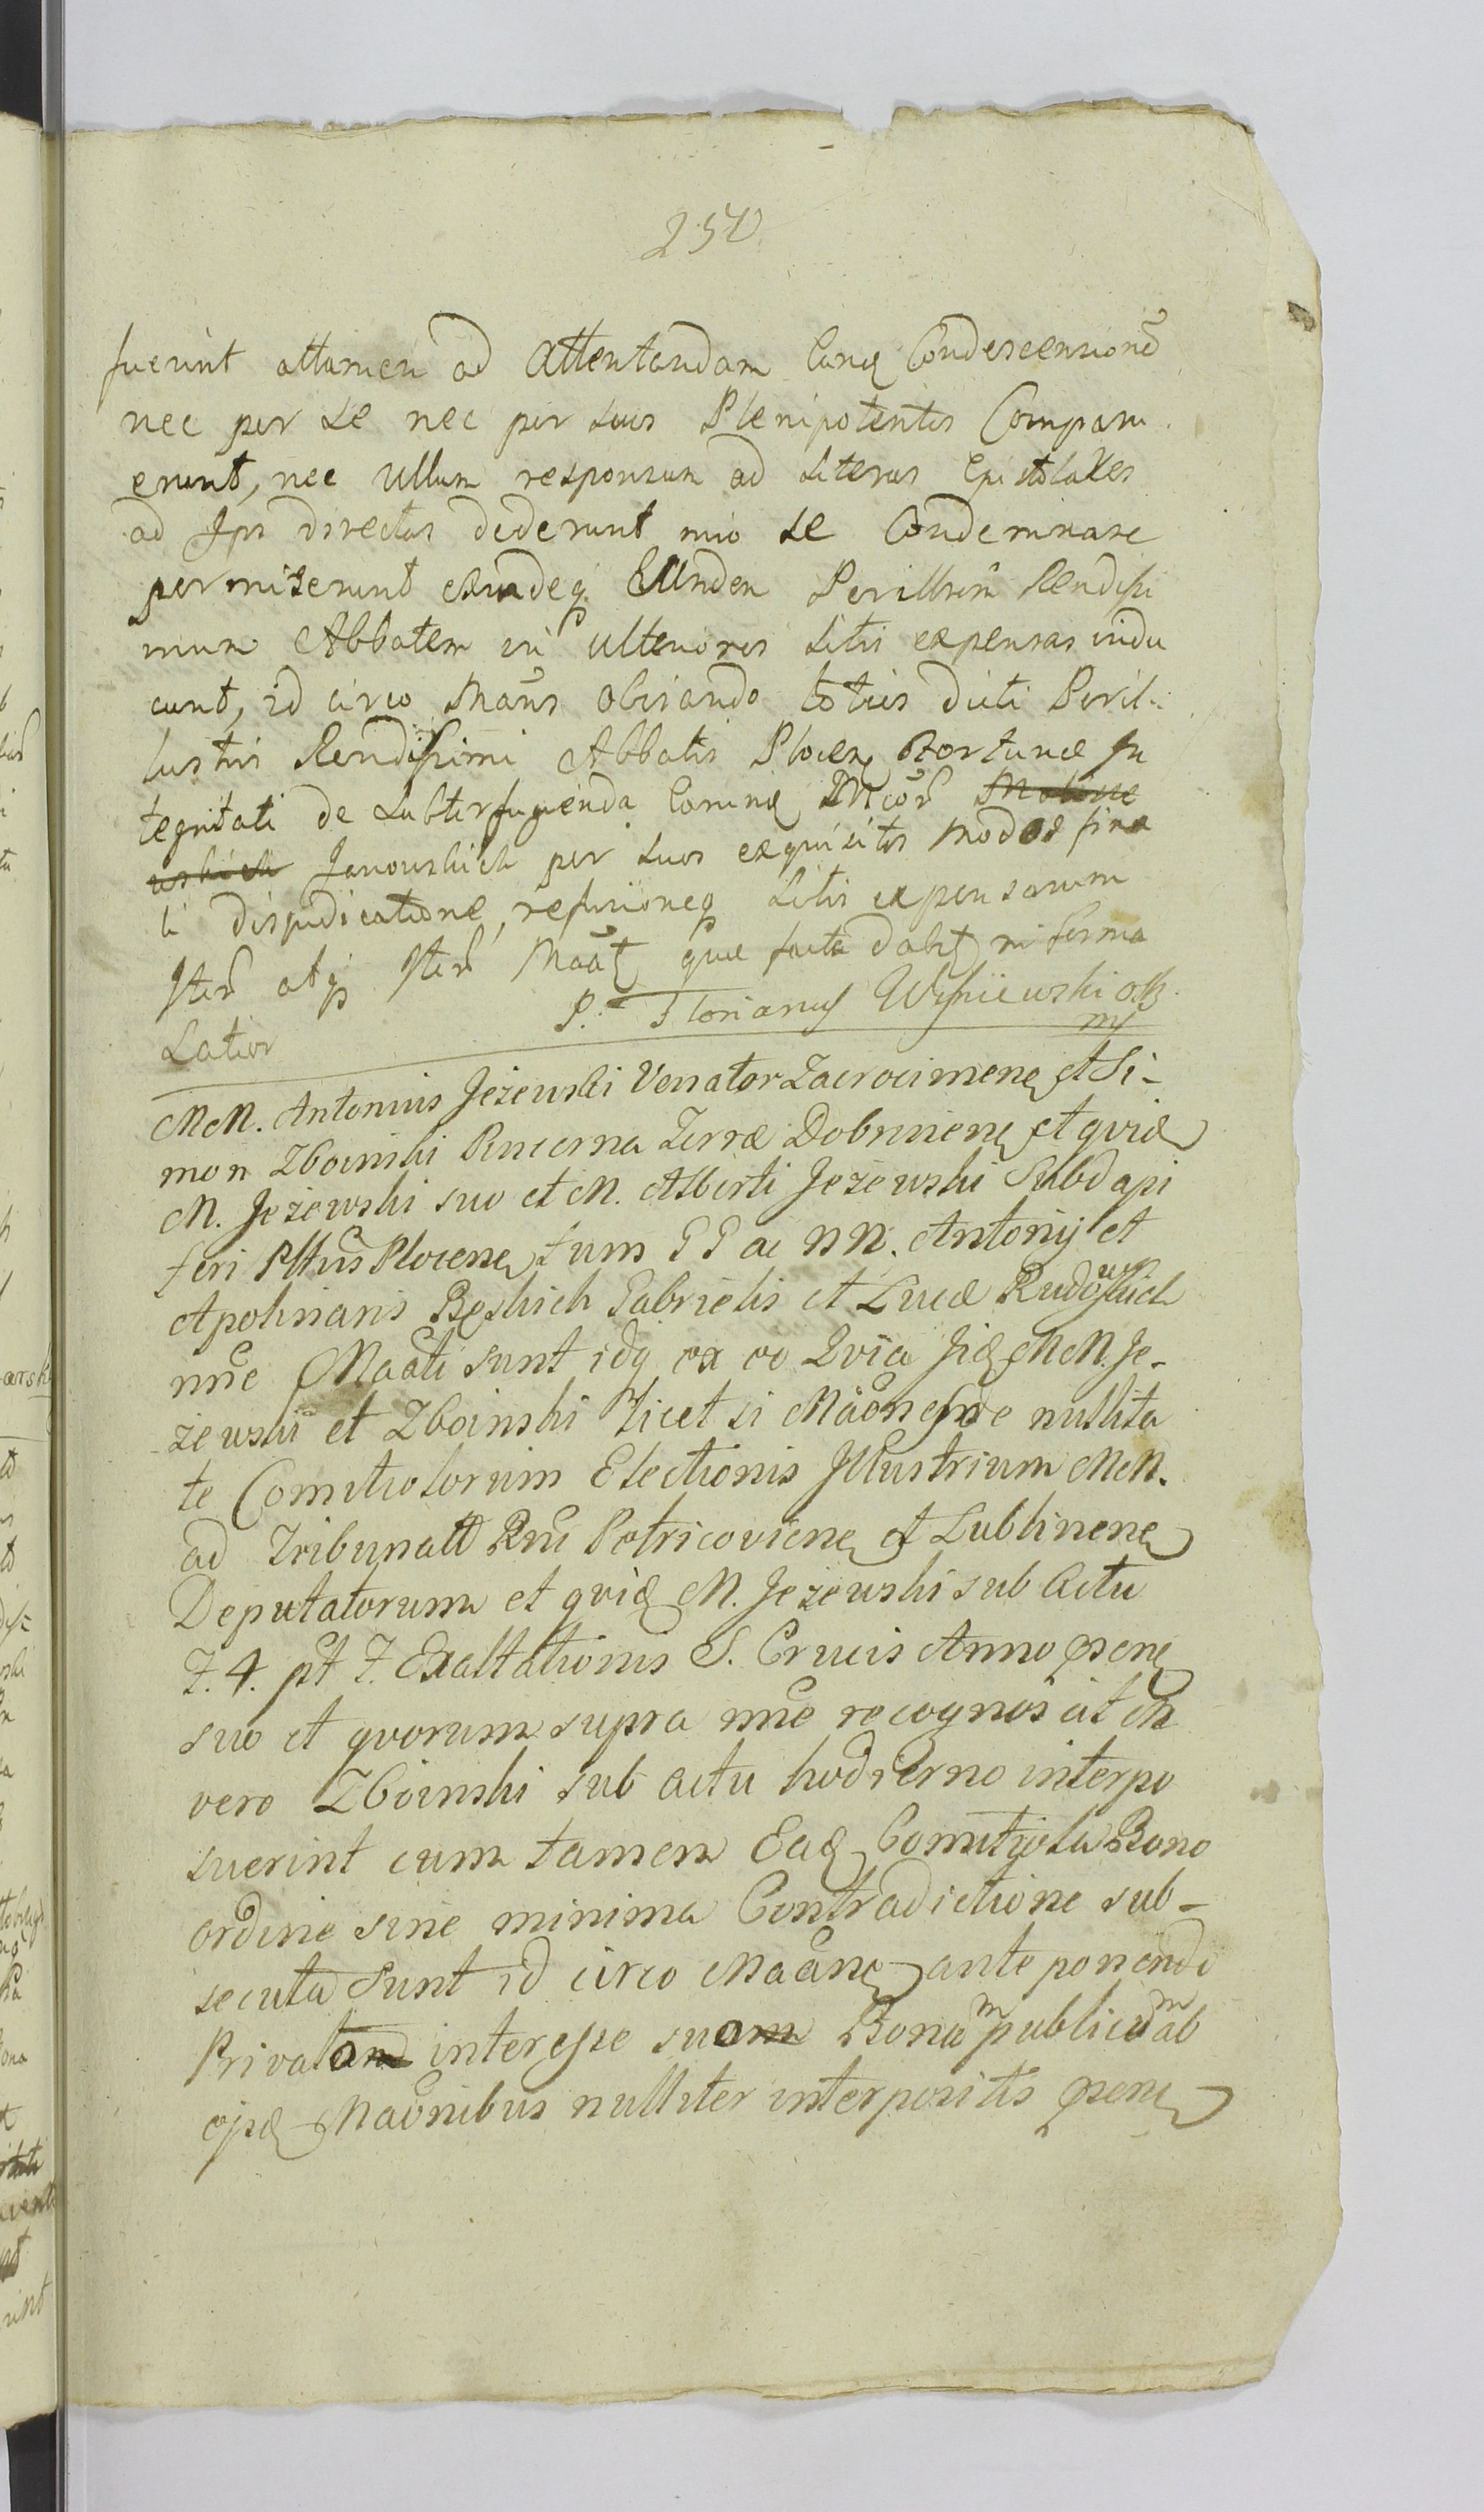 250
fuerint attamen ad attentandam Eand Condescensione
nec per se nec per suos Plenipotentes Comparu
erunt, nec Ullum responsum ad Literas Epistolares
ad Ipsos directas dederunt imo se Condemnare
permiserunt Eundem Perillrem Rendissi
mum Abbatem in ulteriores Litis expensas indu
cunt, id circo Mans obviando totius dicti Peril:
lustris Rendissimi Abbatis Plocen fortunæ In
tegritati de subterfugienda MMcor
Janowskich per suos exquisitos modos fina
li disjudicatione, refusioneq Litis expensarum
Iter atq Iter Maat quæ facta dabit in forma
Latior P. Florianus Wyssiewski
mp
MM. Antonius Jeżewski Venator Zacrocimens et Si-
mon Zboinski Pincerna Terræ Dobrinens et quid
M. Jeżewski suo et M. Alberti Jeżewski Subdapi
feri Plttus Plocens tum GG ac NN. Antonij et
Apolinaris Gabrielis et Lucæ Rudowskich
nne Maati sunt idq ex eo Quia Jid MM. Je-
żewski et Zboinski licet si Maones de nullita
te Comitiolorum Electionis Illustrium MM.
ad Tribunall Rni Petricoviens et Lublinens
Deputatorum et quid M. Jeżewski sub Actu
F. 4. pt F. Exaltationis S. Crucis Anno psens
suo et quorum supra nne recognoscit M
vero Zboinski sub actu hodierno interpo
suerint cum tamen Ead Comitiola Bono
ordine sine minima Contradictione sub-
secuta sunt id circo Maans anteponendo
Privatam interesse suam Bonum publicum ab
ejsd Maonibus nulliter interpositis psens